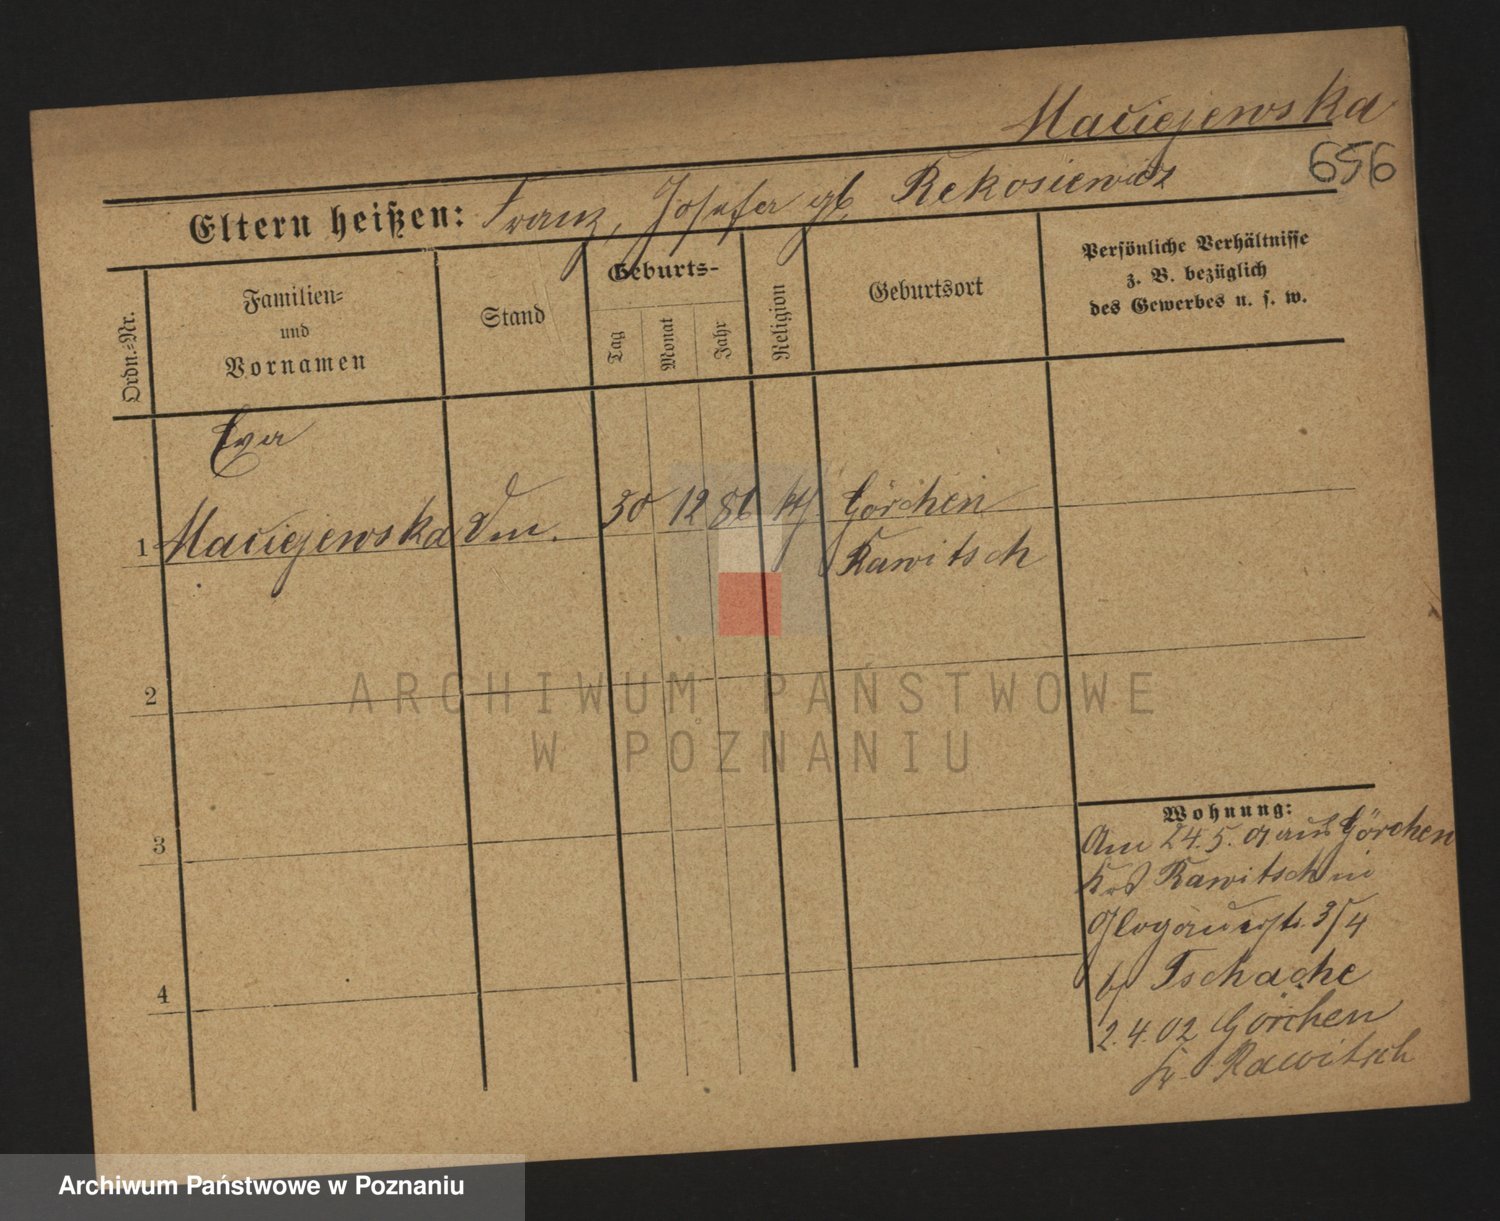 Maciejewska
656
Eltern heißen: Franz, Josefa gb Rekosiewicz
Ordn.-Nr.
Familien-
und
Vornamen
Stand
Geburts-
Tag
Monat
Jahr
Religion
Geburtsort
Persönliche Verhältnisse
z. B. bezüglich
des Gewerbes u. s. w.
Eva
1 Maciejewska 30 12 86 kth Görchen
Rawitsch
2
3
4
Wohnung:
Am 24.5.01 aus Görchen
Krs Rawitsch in
Glogauerstr. 3/4
bei Tschache
2.4.02 Görchen
Kr. Rawitsch
ARCHIWUM PAŃSTWOWE
W POZNANIU
Archiwum Państwowe w Poznaniu